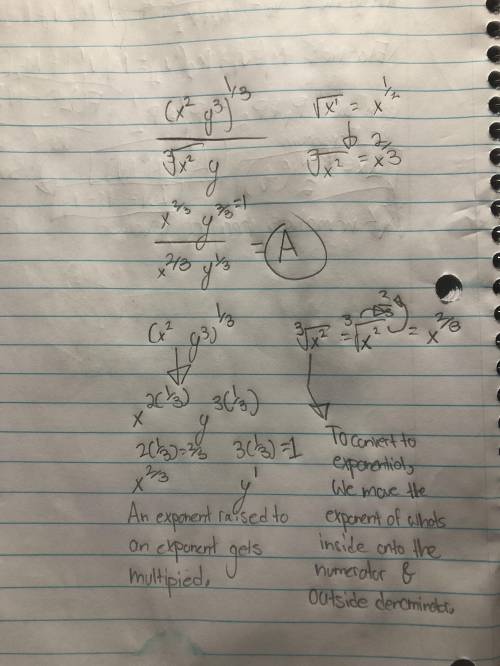 (x² y³)^1/3
∛x² y
√x¹ = x^1/2
∛x² = x^2/3
x^2/3 y^3/3=1
x^2/3 y^1/3
= A
(x² y³)^1/3
x^2(1/3) y^3(1/3)
2(1/3)=2/3 3(1/3)=1
x^2/3 y¹
An exponent raised to
an exponent gets
multipied.
∛x² = ∛x² = x^2/3
To convert to
exponential,
We move the
exponent of whats
inside onto the
numerator &
outside denominator.